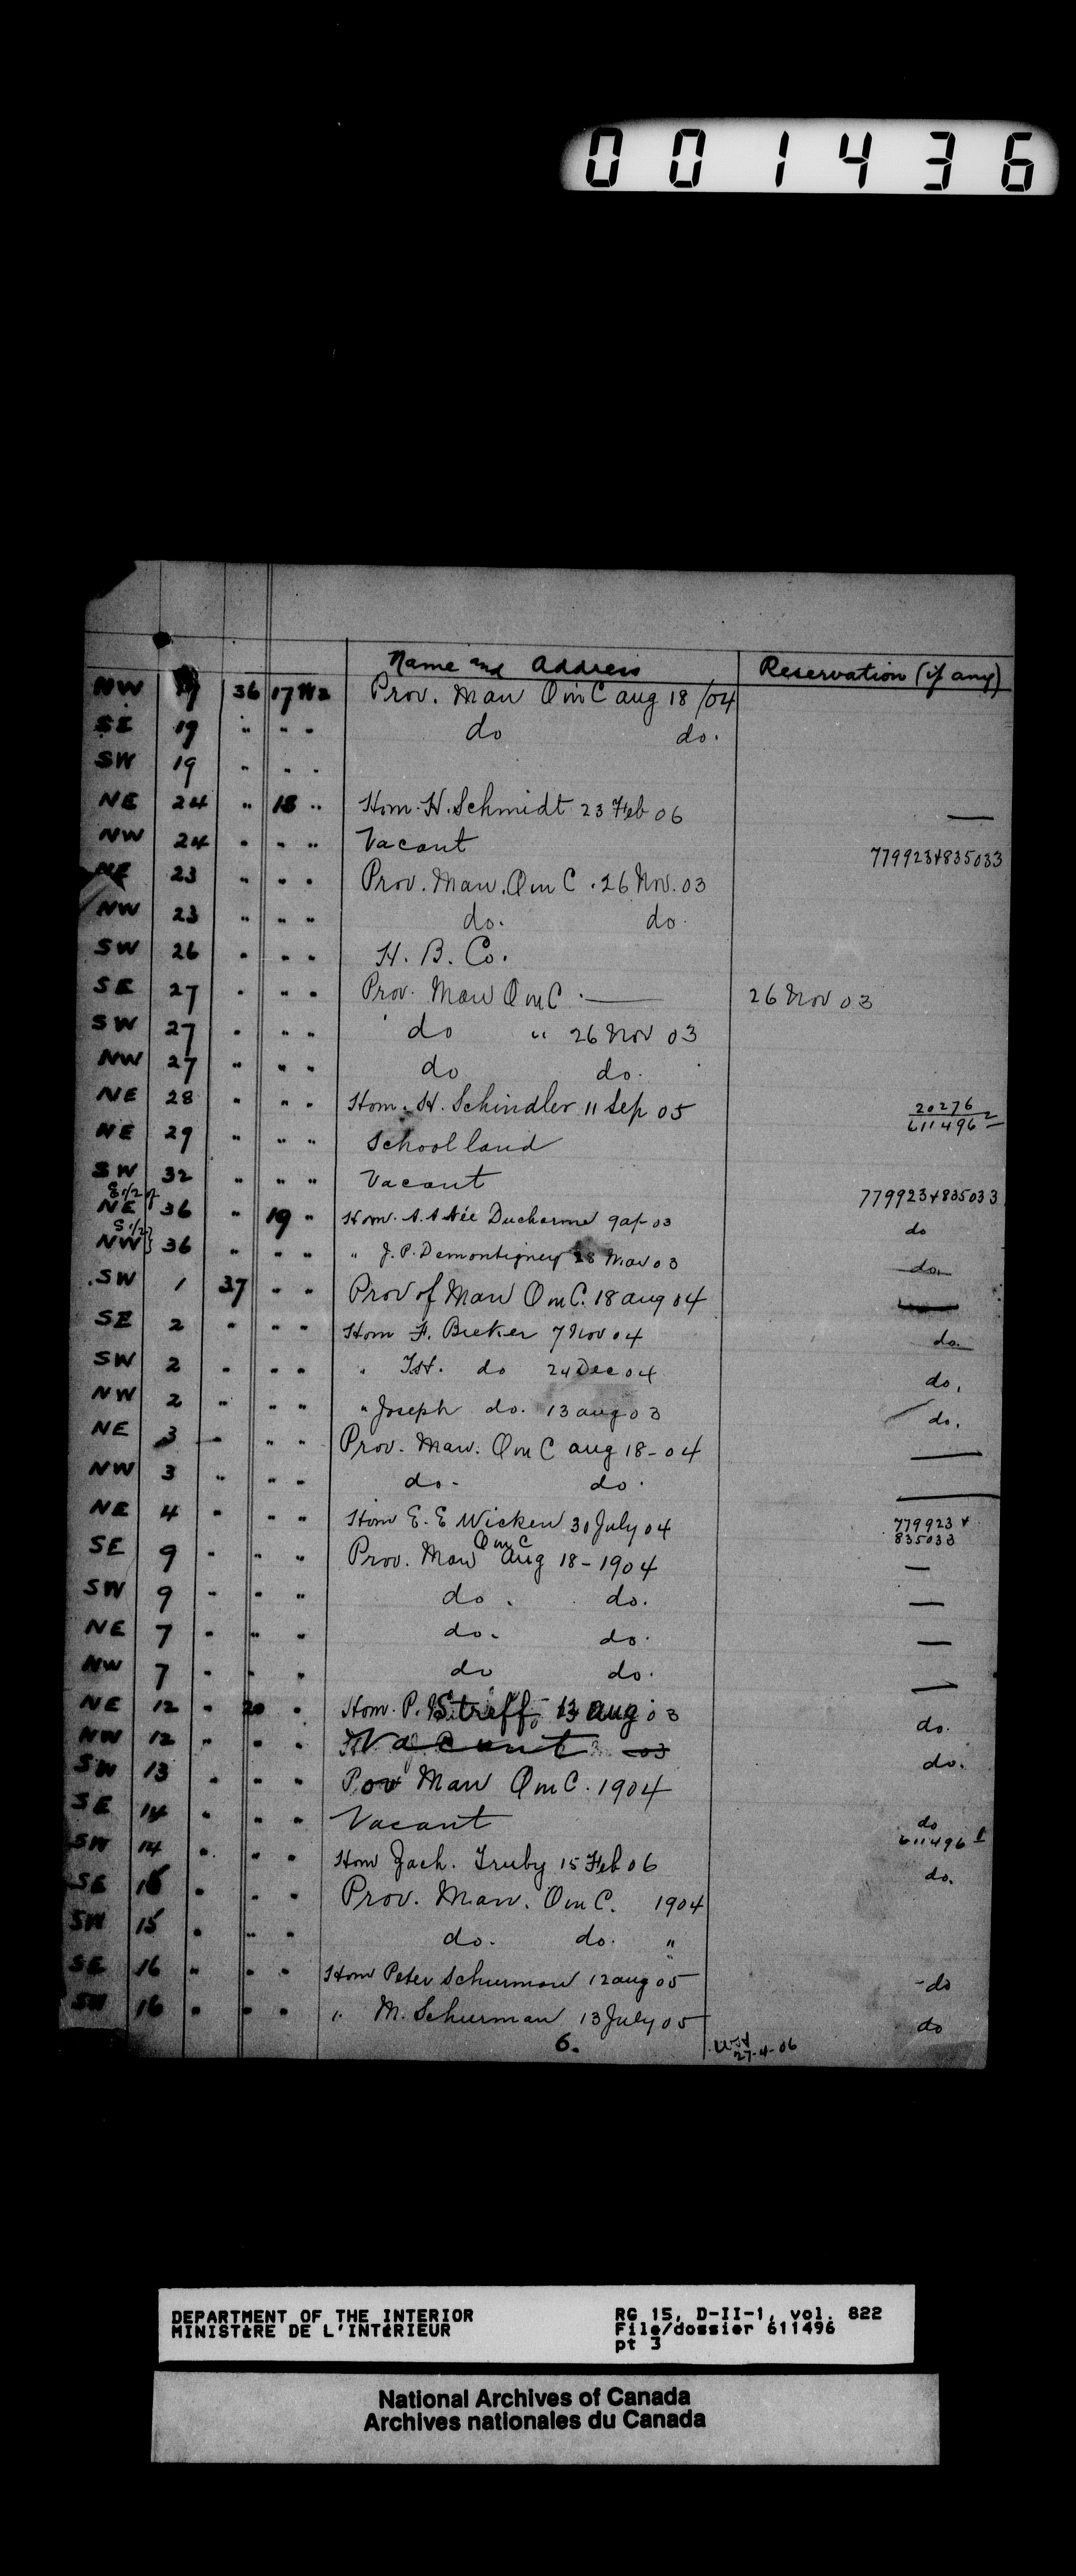 001436
Name and Address Reservation (if any)
NW 19 36 17 W2 Prov. Man O in C aug 18/04
SE 19 " " " do do.
SW 19 " " "
NE 24 " 18 " Hom. H. Schmidt 23 Feb 06 —
NW 24 " " " Vacant 779923+835033
NE 23 " " " Prov. Man. O in C. 26 Nov. 03
NW 23 " " " do. do.
SW 26 " " " H. B. Co.
SE 27 " " " Prov. Man O in C. — 26 Nov 03
SW 27 " " " do " 26 Nov 03
NW 27 " " " do do.
NE 28 " " " Hom. H. Schindler 11 Sep 05 20276 / 611496 2
NE 29 " " " School land
SW 32 " " " Vacant 779923+835033
S 1/2 of
NE 36 " 19 " Hom. A. A Née Ducharme 9 ap 03 do
S 1/2 }
NW } 36 " " " " J. P. Demontigney 28 Mar 03 do.
SW 1 37 " " Prov of Man O in C. 18 aug 04
SE 2 " " " Hom F. Bieker 7 Nov 04 do.
SW 2 " " " " do 24 Dec 04 do.
NW 2 " " " " Joseph do. 13 aug 03 do.
NE 3 — " " Prov. Man. O in C aug 18-04 —
NW 3 " " " do. do. —
NE 4 " " " Hom E. E Wicken 30 July 04 779923 + 835033
SE 9 " " " Prov. Man O in C aug 18-1904 —
SW 9 " " " do. do. —
NE 7 " " " do. do. —
NW 7 " " " do do. —
NE 12 " 20 " Hom. P. Streff 13 aug 03 do.
NW 12 " " " Vacant 03 do.
SW 13 " " " Pov Man O in C. 1904
SE 14 " " " Vacant do 611496 1
SW 14 " " " Hom Jach. Truby 15 Feb 06 do.
SE 15 " " " Prov. Man. O in C. 1904
SW 15 " " " do. do. "
SE 16 " " " Hom Peter Schurman 12 aug 05 - do
SW 16 " " " " M. Schurman 13 July 05 do
6. 27-4-06
DEPARTMENT OF THE INTERIOR RG 15, D-II-1, vol. 822
MINISTÈRE DE L'INTÉRIEUR File/dossier 611496
pt 3
National Archives of Canada
Archives nationales du Canada